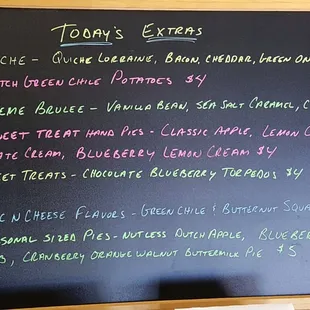 TODAY'S EXTRAS
CHE - QUICHE LORRAINE, BACON, CHEDDAR, GREEN ON
TCH GREEN CHILE POTATOES $4
EME BRULEE - VANILLA BEAN, SEA SALT CARAMEL, C
EET TREAT HAND PIES - CLASSIC APPLE, LEMON C
ATE CREAM, BLUEBERRY LEMON CREAM $4
EET TREATS - CHOCOLATE BLUEBERRY TORPEDOS $4
C N CHEESE FLAVORS - GREEN CHILE & BUTTERNUT SQUA
SONAL SIZED PIES - NUTLESS DUTCH APPLE, BLUEBER
, CRANBERRY ORANGE WALNUT BUTTERMILK PIE $5